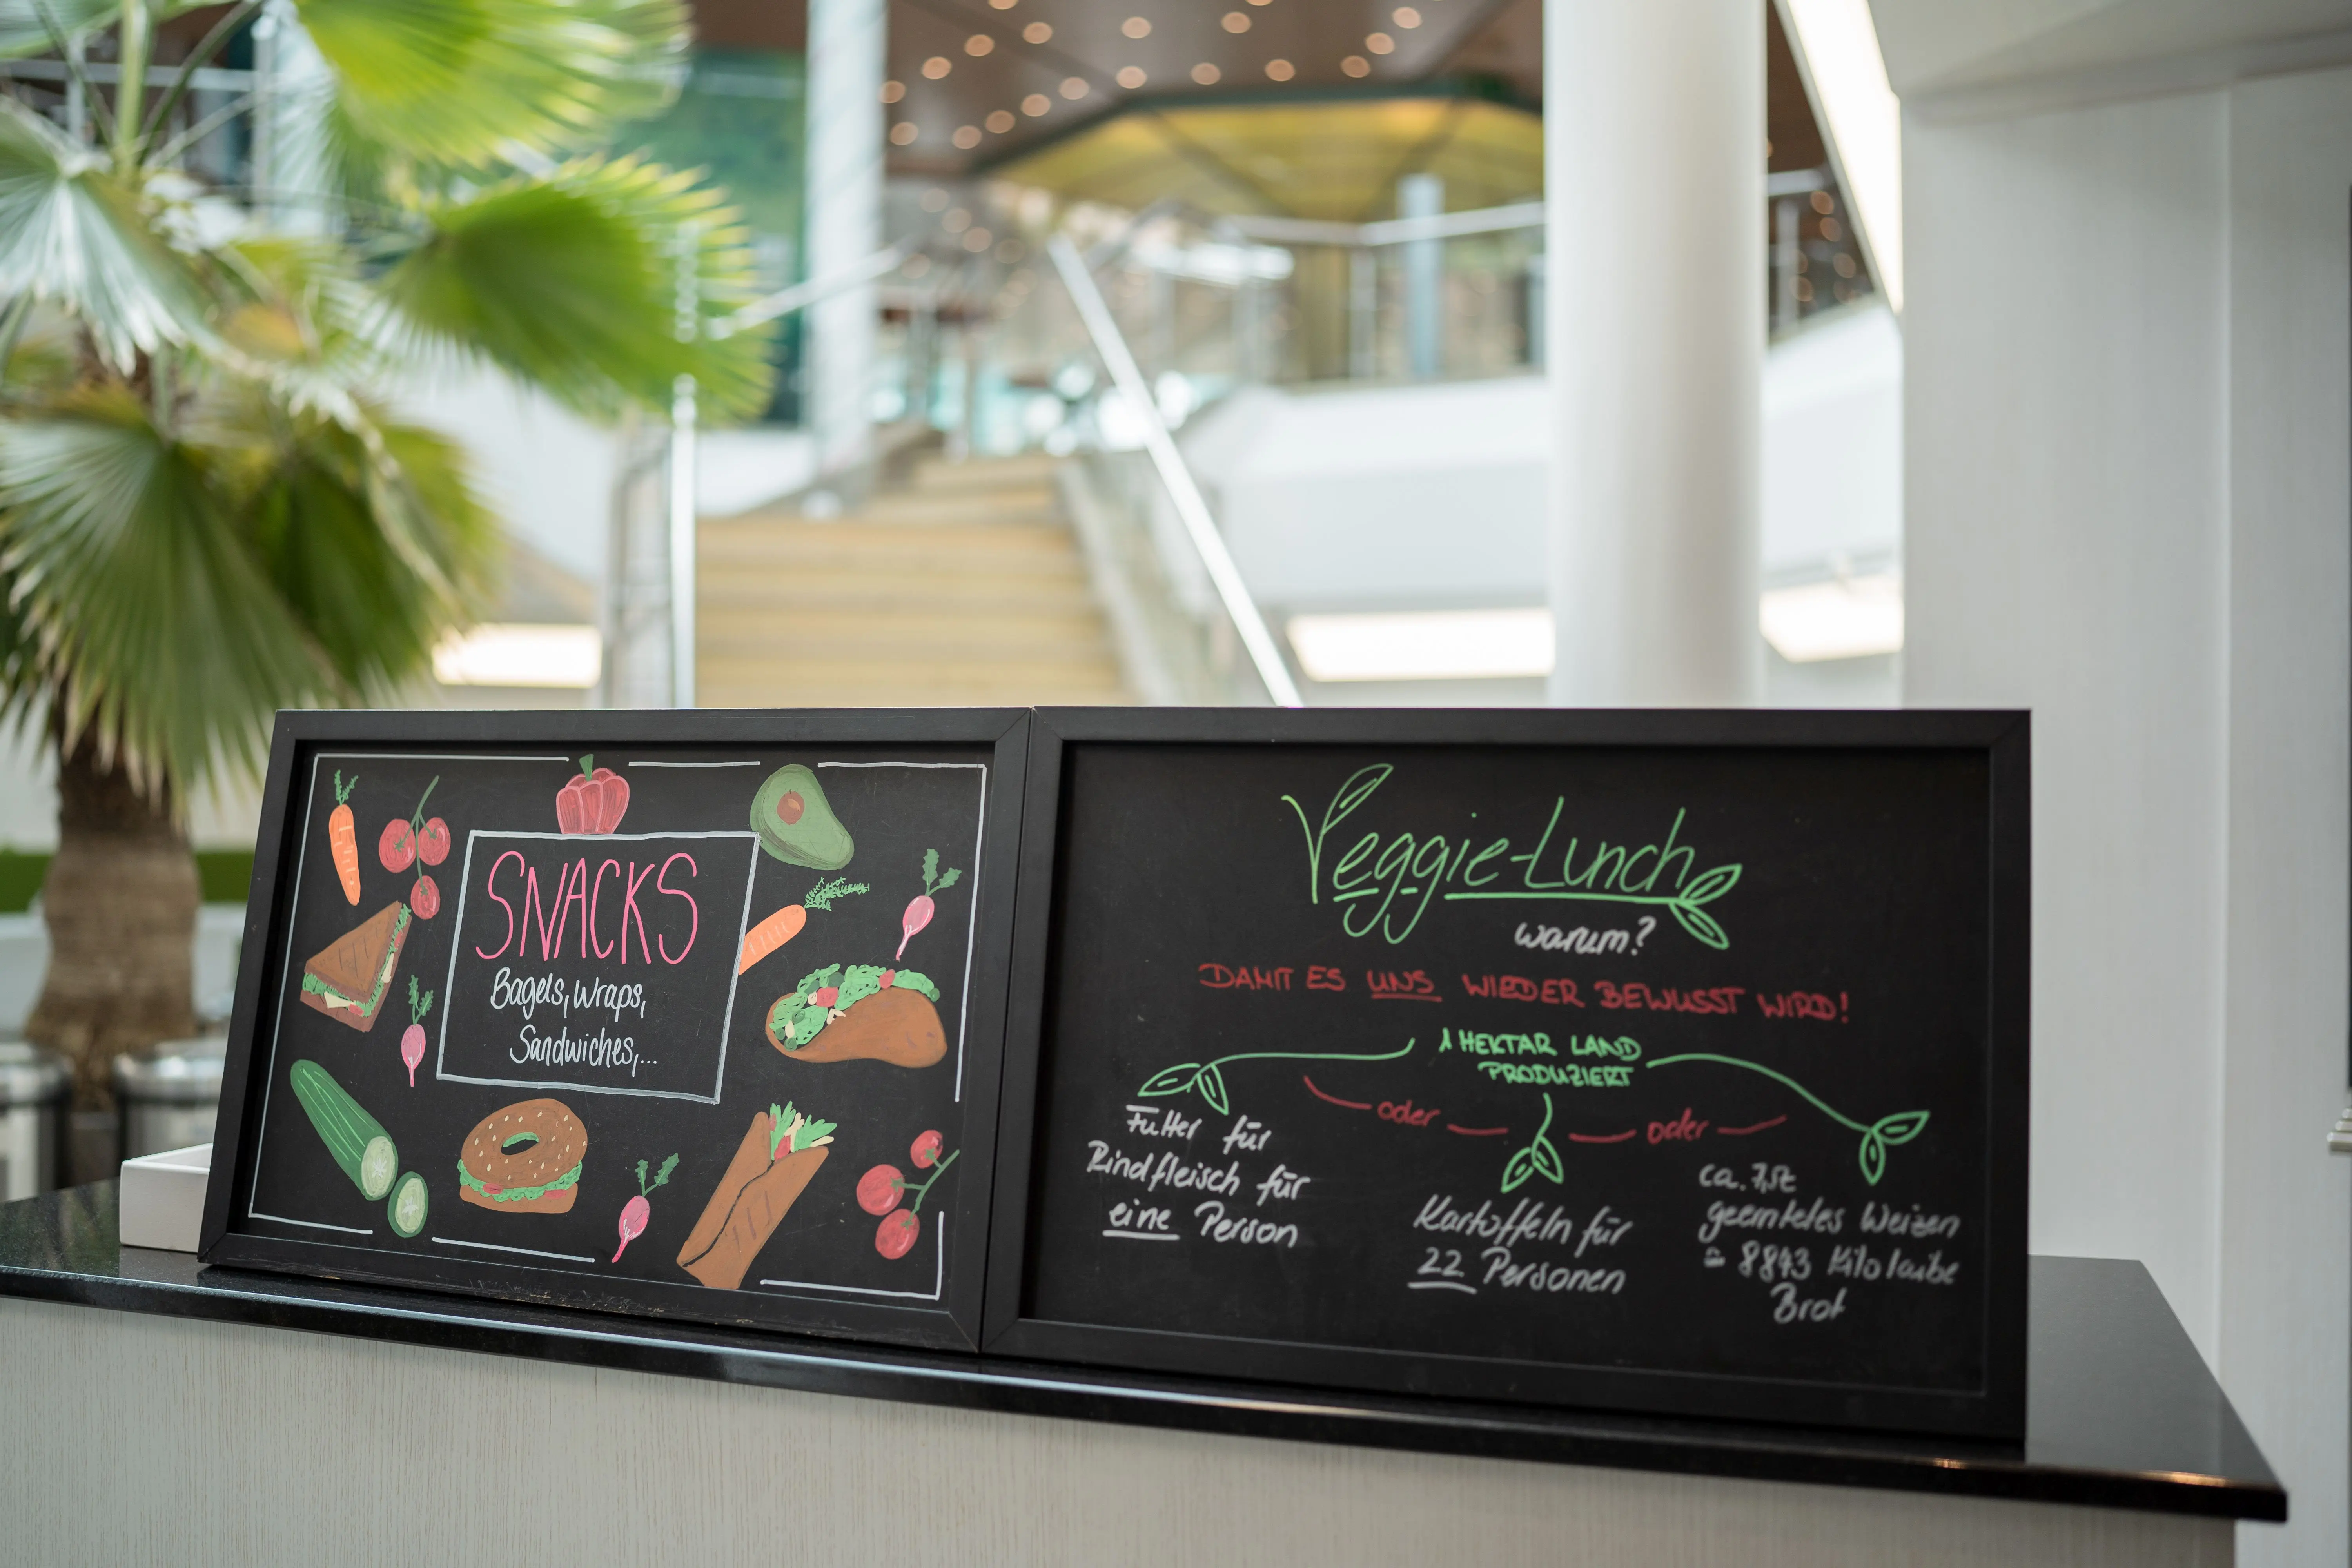 SNACKS
Bagels, Wraps,
Sandwiches,...
Veggie-Lunch
warum?
DAMIT ES UNS WIEDER BEWUSST WIRD!
1 HEKTAR LAND
PRODUZIERT
oder
oder
Futter für
Rindfleisch für
eine Person
Kartoffeln für
22 Personen
ca. 7,5t
geerntetes Weizen
≙ 8843 Kilolaibe
Brot